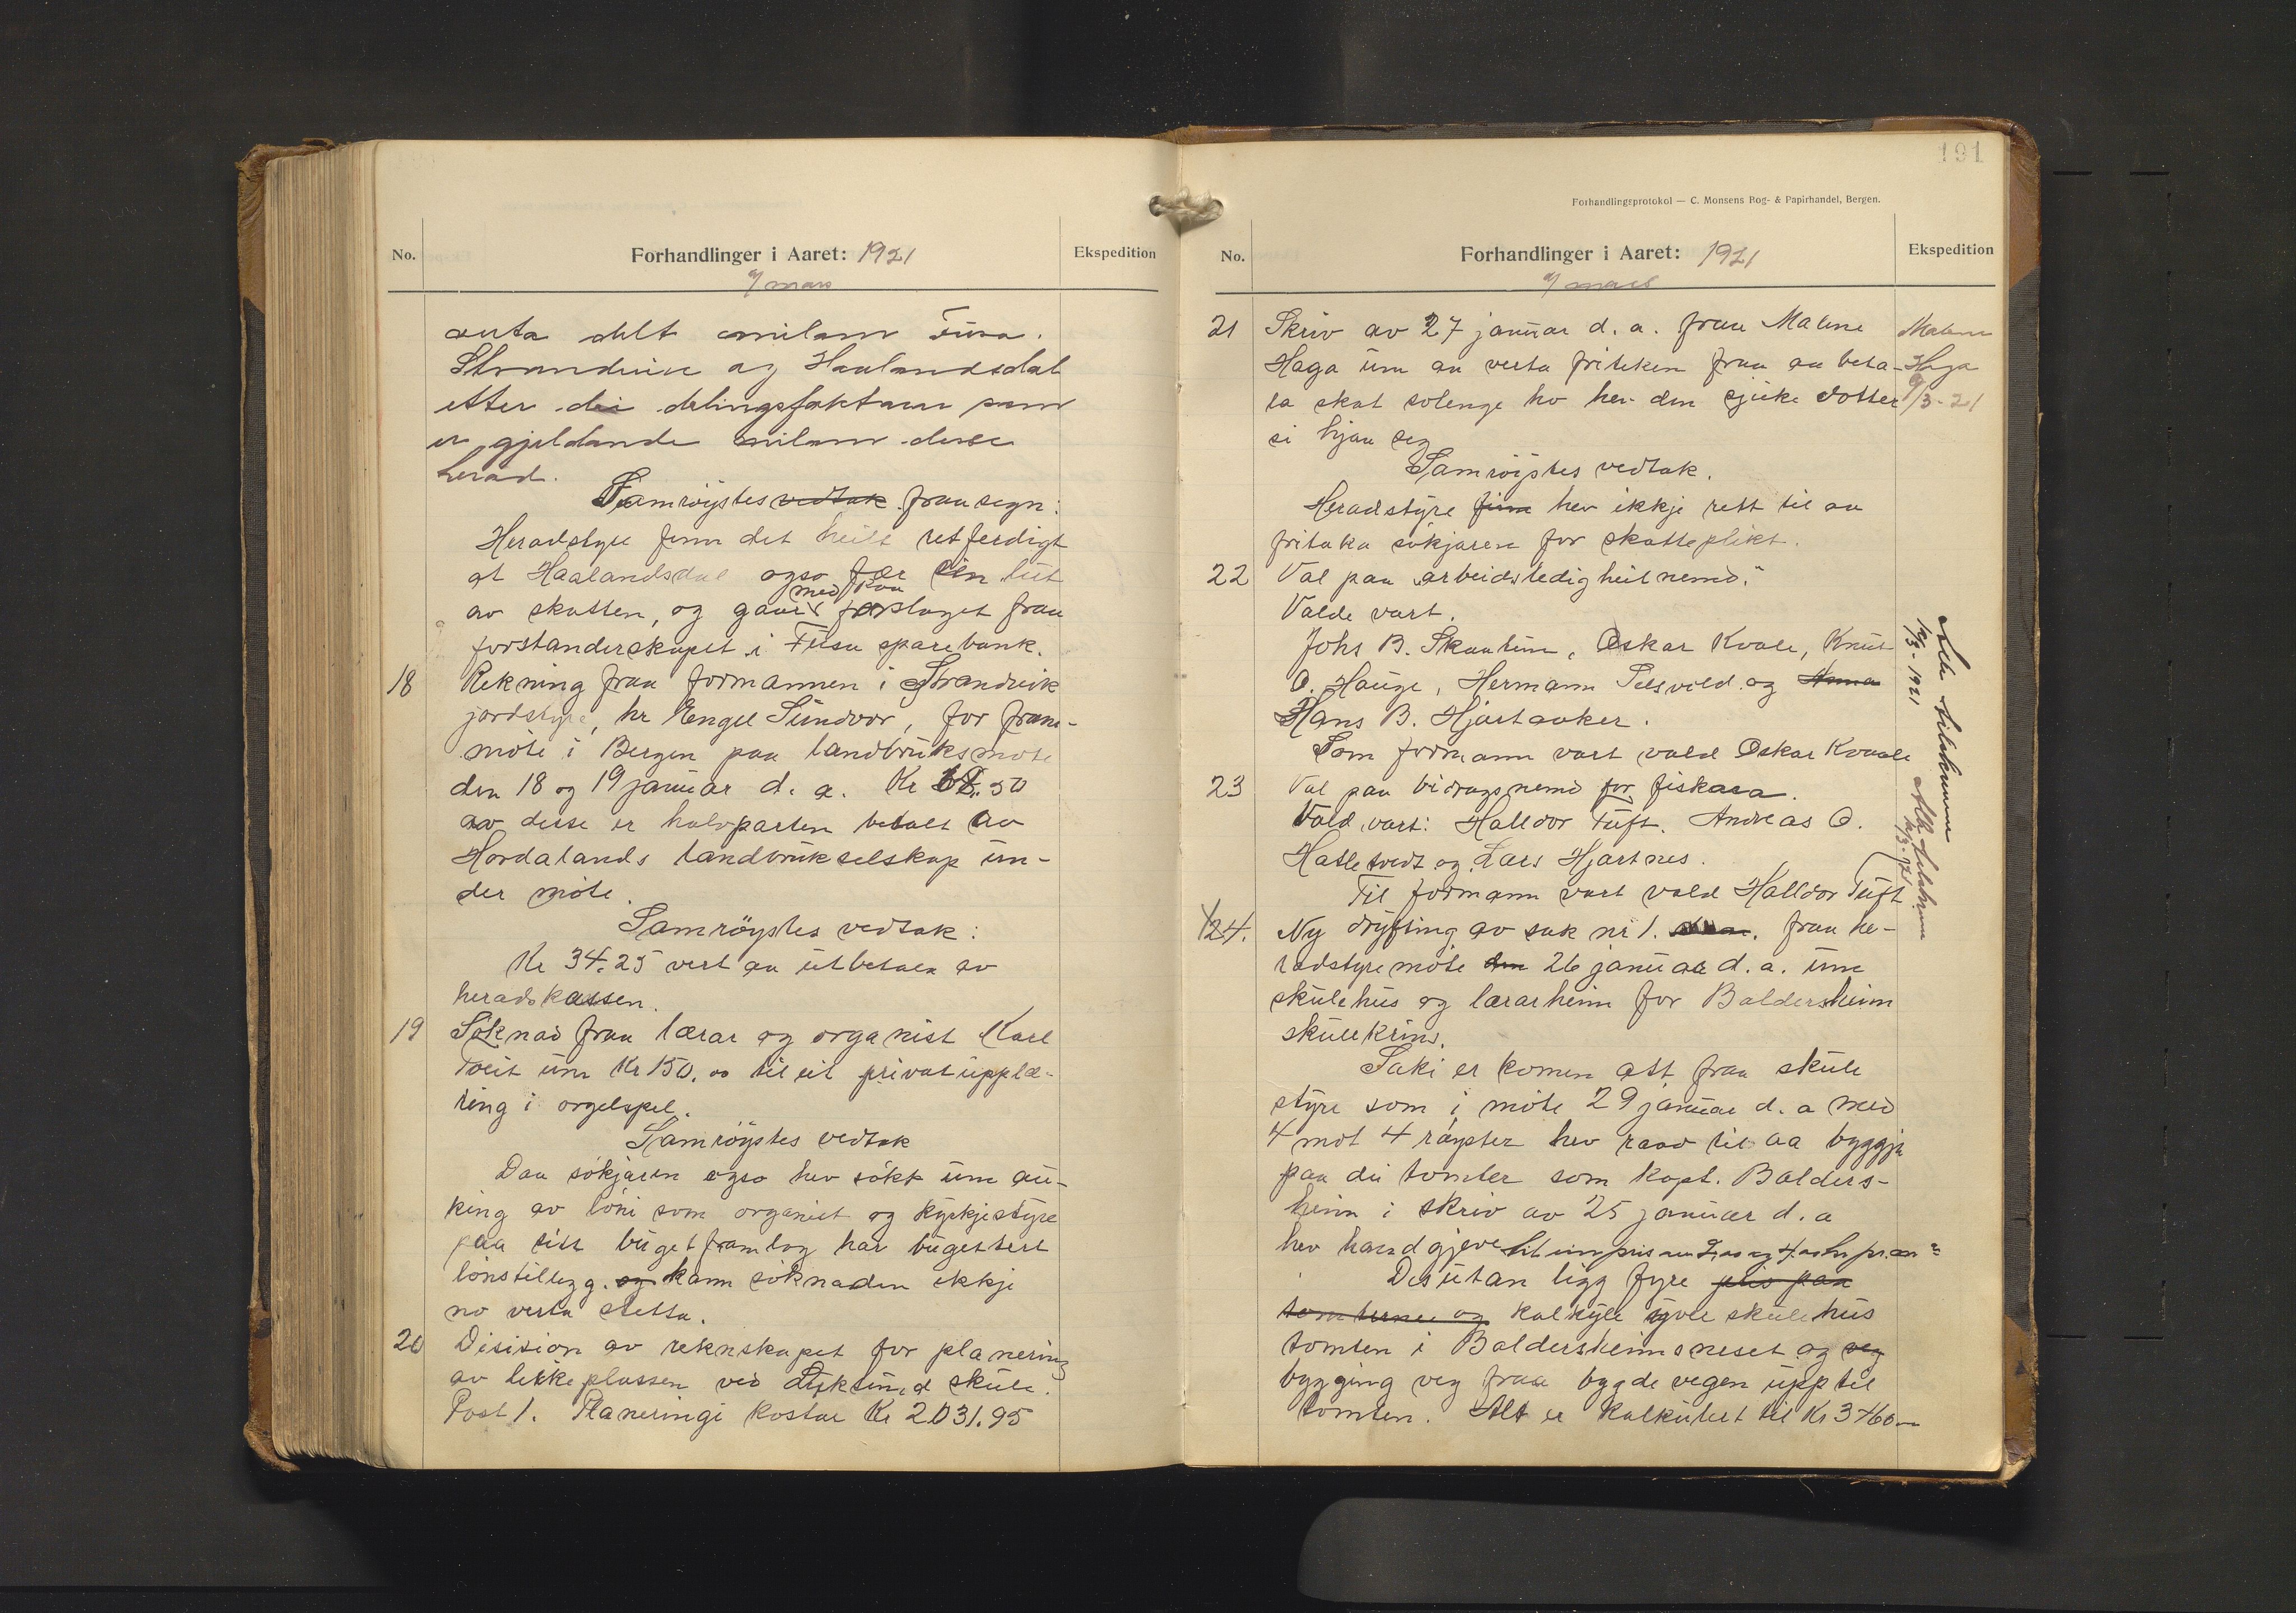 No.
Forhandlinger i Aaret: 1921
Ekspedition
9/ mars
verta delt millom Fusa.
Strandvik og Haalandsdal
etter dei delingsfaktorar som
er gjeldande millom desse
herad.
Samrøystes vedtak fraasegn:
Heradstyre finn det heilt retferdigt
at Haalandsdal ogso fær sin lut
av skatten, og gaar med paa forslaget fraa
forstanderskapet i Fusa sparebank.
18 Rekning fraa formannen i Strandvik
jordstyre, hr Engel Sundvor, for fram-
møte i Bergen paa landbruksmøte
den 18 og 19 januar d. a. Kr 68.50
av desse er halvparten betalt av
Hordalands landbrukselskap un-
der møte.
Samrøystes vedtak:
Kr 34.25 vert aa utbetala av
heradskassen.
19 Søknad fraa lærar og organist Karl
Tveit um Kr 150.00 til eit privat upplæ-
ring i orgelspel.
Samrøystes vedtak
Daa søkjaren ogso hev søkt um au-
king av løni som organist og kyrkjestyre
paa sitt bugetframlag har bugettert
lønstillegg. og kann søknaden ikkje
no verta stetta.
20 Disision av reknskapet for planering
av leikeplassen ved Eiksund skule.
Post 1. Planeringi kostar Kr 2031.95
191
Forhandlingsprotokol — C. Monsens Bog- & Papirhandel, Bergen.
No.
Forhandlinger i Aaret: 1921
Ekspedition
9/ mars
21 Skriv av 27 januar d. a. fraa Malene
Haga um aa verta friteken fraa aa beta-
la skat solenge ho hev den sjuke dotter
si hjaa seg
Malene
Haga
9/3-21
Samrøystes vedtak.
Heradstyre finn hev ikkje rett til aa
fritaka søkjaren for skatteplikt.
22 Val paa "arbeidsledigheitnemd."
Valde vart.
Johs B. Skaatun, Oskar Kvale, Knut
O. Hauge, Hermann Selsvold og
Hans B. Hjartaaker.
Som formann vart vald Oskar Kvaale
23 Val paa bidragsnemd for fiskara.
Vald vart: Halldor Tuft. Andreas O.
Hatletvedt og Lars Hjartnes.
Til formann vart vald Halldor Tuft
24. Ny drøfting av sak nr 1. fraa he-
radstyremøte den 26 januar d. a. um
skulehus og lærarheim for Baldersheim
skulekrins.
Saki er komen att fraa skule
styre som i møte 29 januar d. a med
4 mot 4 røyster hev raad til aa byggja
paa dei tomter som kapt. Balders-
heim i skriv av 25 januar d. a
hev handgjeve
Desutan ligg fyre pris paa
tomterne og kalkyle yver skulehus
tomten i Baldersheimsneset og veg
bygging veg fraa bygdevegen upp til
tomten. Alt er kalkulert til Kr 3760